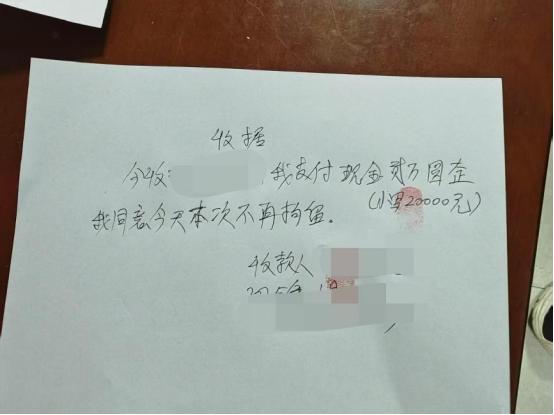 收据
今收: 我支付现金贰万圆整
(小写20000元)
我同意今天本次不再拘留。
收款人
2025年